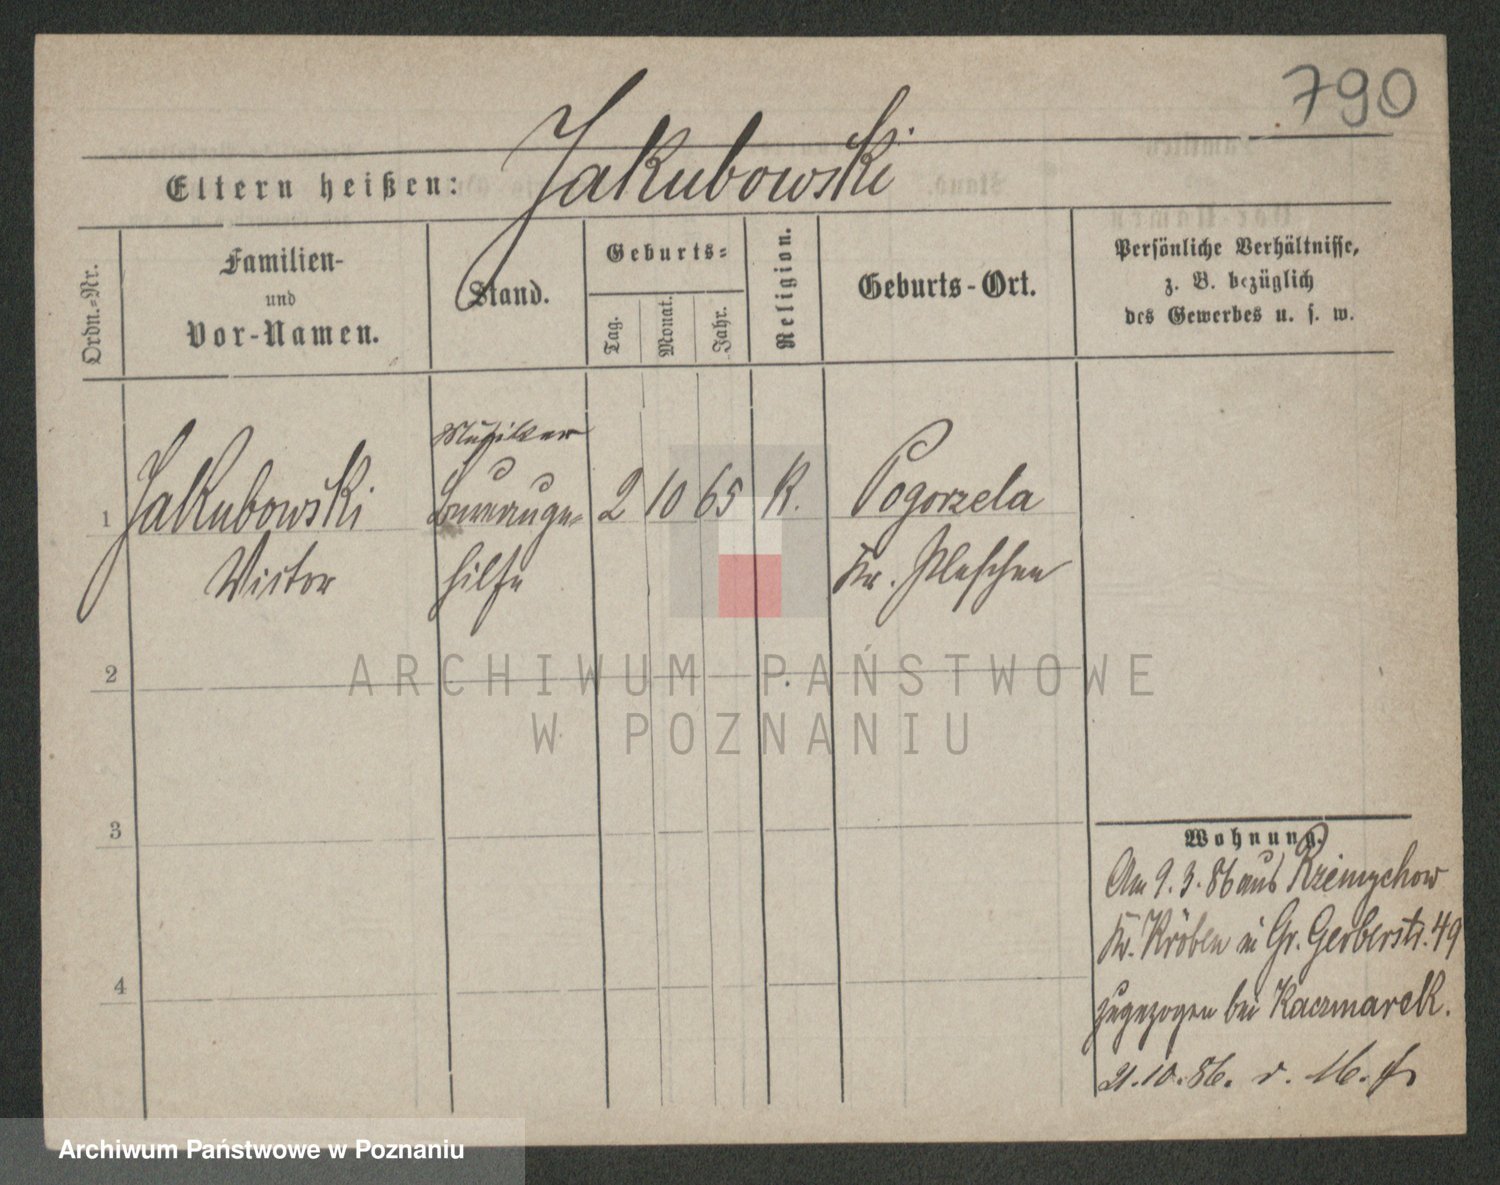 790
Eltern heißen: Jakubowski
Ordn.-Nr.
Familien-
und
Vor-Namen.
Stand.
Geburts-
Tag.
Monat.
Jahr.
Religion.
Geburts-Ort.
Persönliche Verhältnisse,
z. B. bezüglich
des Gewerbes u. s. w.
Musiker
1 Jakubowski 2 10 65 K. Pogorzela
Victor hilfe Kr. Pleschen
2
ARCHIWUM PAŃSTWOWE
W POZNANIU
3
Wohnung.
Am 9.3.86 aus Rzemychow
Kr. Kröben in Gr. Gerberstr. 49
4
zugezogen bei Kaczmarek.
21.10.86. v.
Archiwum Państwowe w Poznaniu